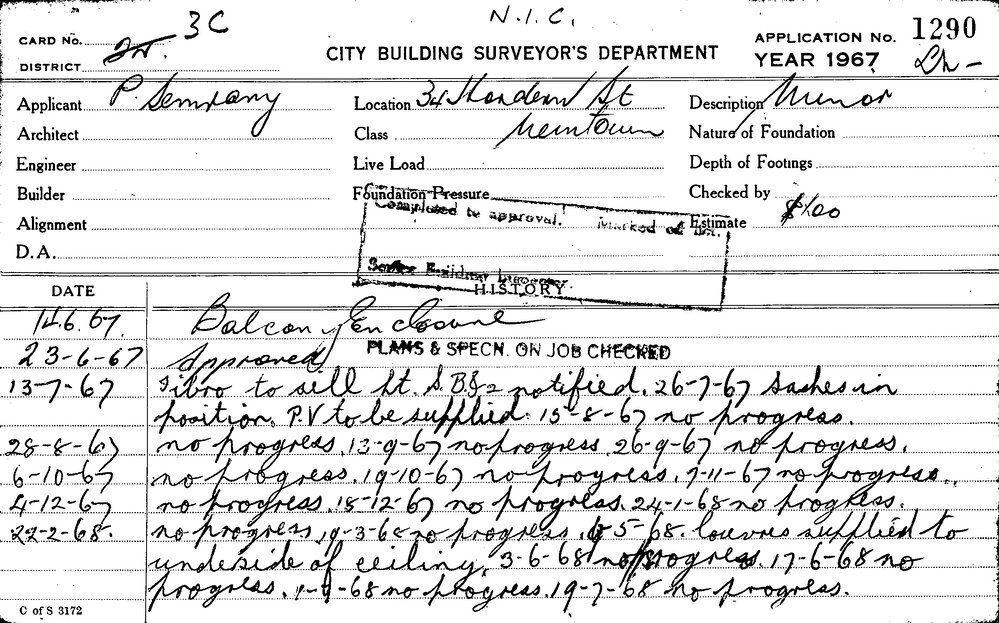 N.I.C.
CARD No. 3C
DISTRICT
CITY BUILDING SURVEYOR'S DEPARTMENT
APPLICATION No. 1290
YEAR 1967
Applicant P.
Location 34 St
Description Minor
Architect
Class Newtown
Nature of Foundation
Engineer
Live Load
Depth of Footings
Builder
Foundation Pressure
Checked by
Completed to approval. Marked off
Alignment
Estimate $100
D.A.
Senior Building Inspector.
DATE
HISTORY
14.6.67. Balcony Enclosure
23-6-67 Approved PLANS & SPECN. ON JOB CHECKED
13-7-67 Fibro to sill ht. notified. 26-7-67 Sashes in
position. P.V to be supplied. 15-8-67 no progress.
28-8-67 no progress. 13-9-67 no progress. 26-9-67 no progress.
6-10-67 no progress. 19-10-67 no progress. 7-11-67 no progress.
4-12-67 no progress. 15-12-67 no progress. 24-1-68 no progress.
22-2-68. no progress. 19-3-68 no progress. 5-68. louvres supplied to
underside of ceiling. 3-6-68 no progress. 17-6-68 no
progress. 1-7-68 no progress. 19-7-68 no progress.
C of S 3172